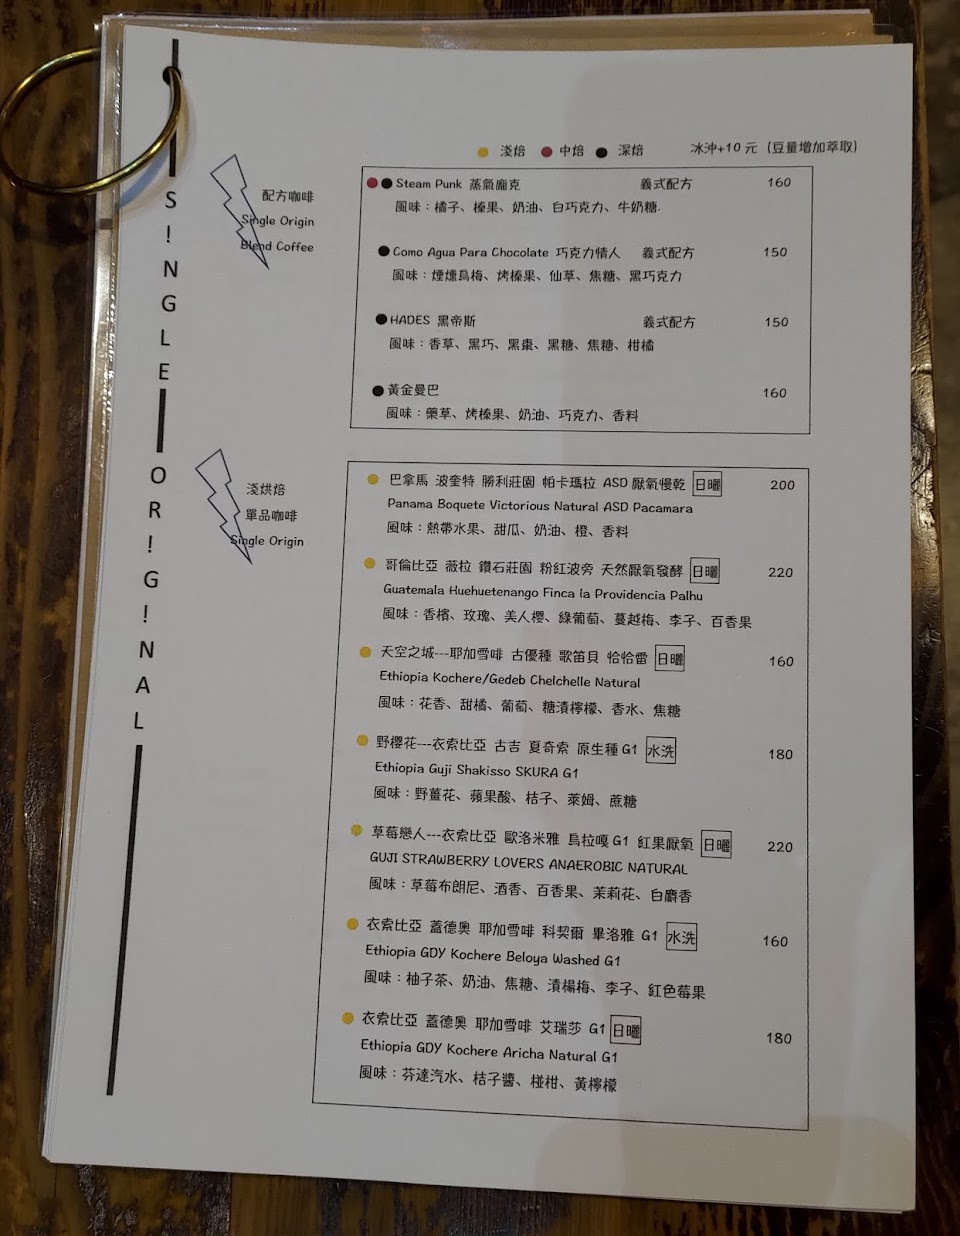 S!NGLE OR!G!NAL
淺焙 中焙 深焙 冰沖+10 元 (豆量增加萃取)
配方咖啡
Single Origin
Blend Coffee
Steam Punk 蒸氣龐克 義式配方 160
風味：橘子、榛果、奶油、白巧克力、牛奶糖.
Como Agua Para Chocolate 巧克力情人 義式配方 150
風味：煙燻烏梅、烤榛果、仙草、焦糖、黑巧克力
HADES 黑帝斯 義式配方 150
風味：香草、黑巧、黑棗、黑糖、焦糖、柑橘
黃金曼巴 160
風味：藥草、烤榛果、奶油、巧克力、香料
淺烘焙
單品咖啡
Single Origin
巴拿馬 波奎特 勝利莊園 帕卡瑪拉 ASD 厭氧慢乾 日曬 200
Panama Boquete Victorious Natural ASD Pacamara
風味：熱帶水果、甜瓜、奶油、橙、香料
哥倫比亞 薇拉 鑽石莊園 粉紅波旁 天然厭氧發酵 日曬 220
Guatemala Huehuetenango Finca la Providencia Palhu
風味：香檳、玫瑰、美人櫻、綠葡萄、蔓越梅、李子、百香果
天空之城---耶加雪啡 古優種 歌笛貝 恰恰雷 日曬 160
Ethiopia Kochere/Gedeb Chelchelle Natural
風味：花香、甜橘、葡萄、糖漬檸檬、香水、焦糖
野櫻花---衣索比亞 古吉 夏奇索 原生種 G1 水洗 180
Ethiopia Guji Shakisso SKURA G1
風味：野薑花、蘋果酸、桔子、萊姆、蔗糖
草莓戀人---衣索比亞 歐洛米雅 烏拉嘎 G1 紅果厭氧 日曬 220
GUJI STRAWBERRY LOVERS ANAEROBIC NATURAL
風味：草莓布朗尼、酒香、百香果、茉莉花、白麝香
衣索比亞 蓋德奧 耶加雪啡 科契爾 畢洛雅 G1 水洗 160
Ethiopia GDY Kochere Beloya Washed G1
風味：柚子茶、奶油、焦糖、漬楊梅、李子、紅色莓果
衣索比亞 蓋德奧 耶加雪啡 艾瑞莎 G1 日曬 180
Ethiopia GDY Kochere Aricha Natural G1
風味：芬達汽水、桔子醬、椪柑、黃檸檬